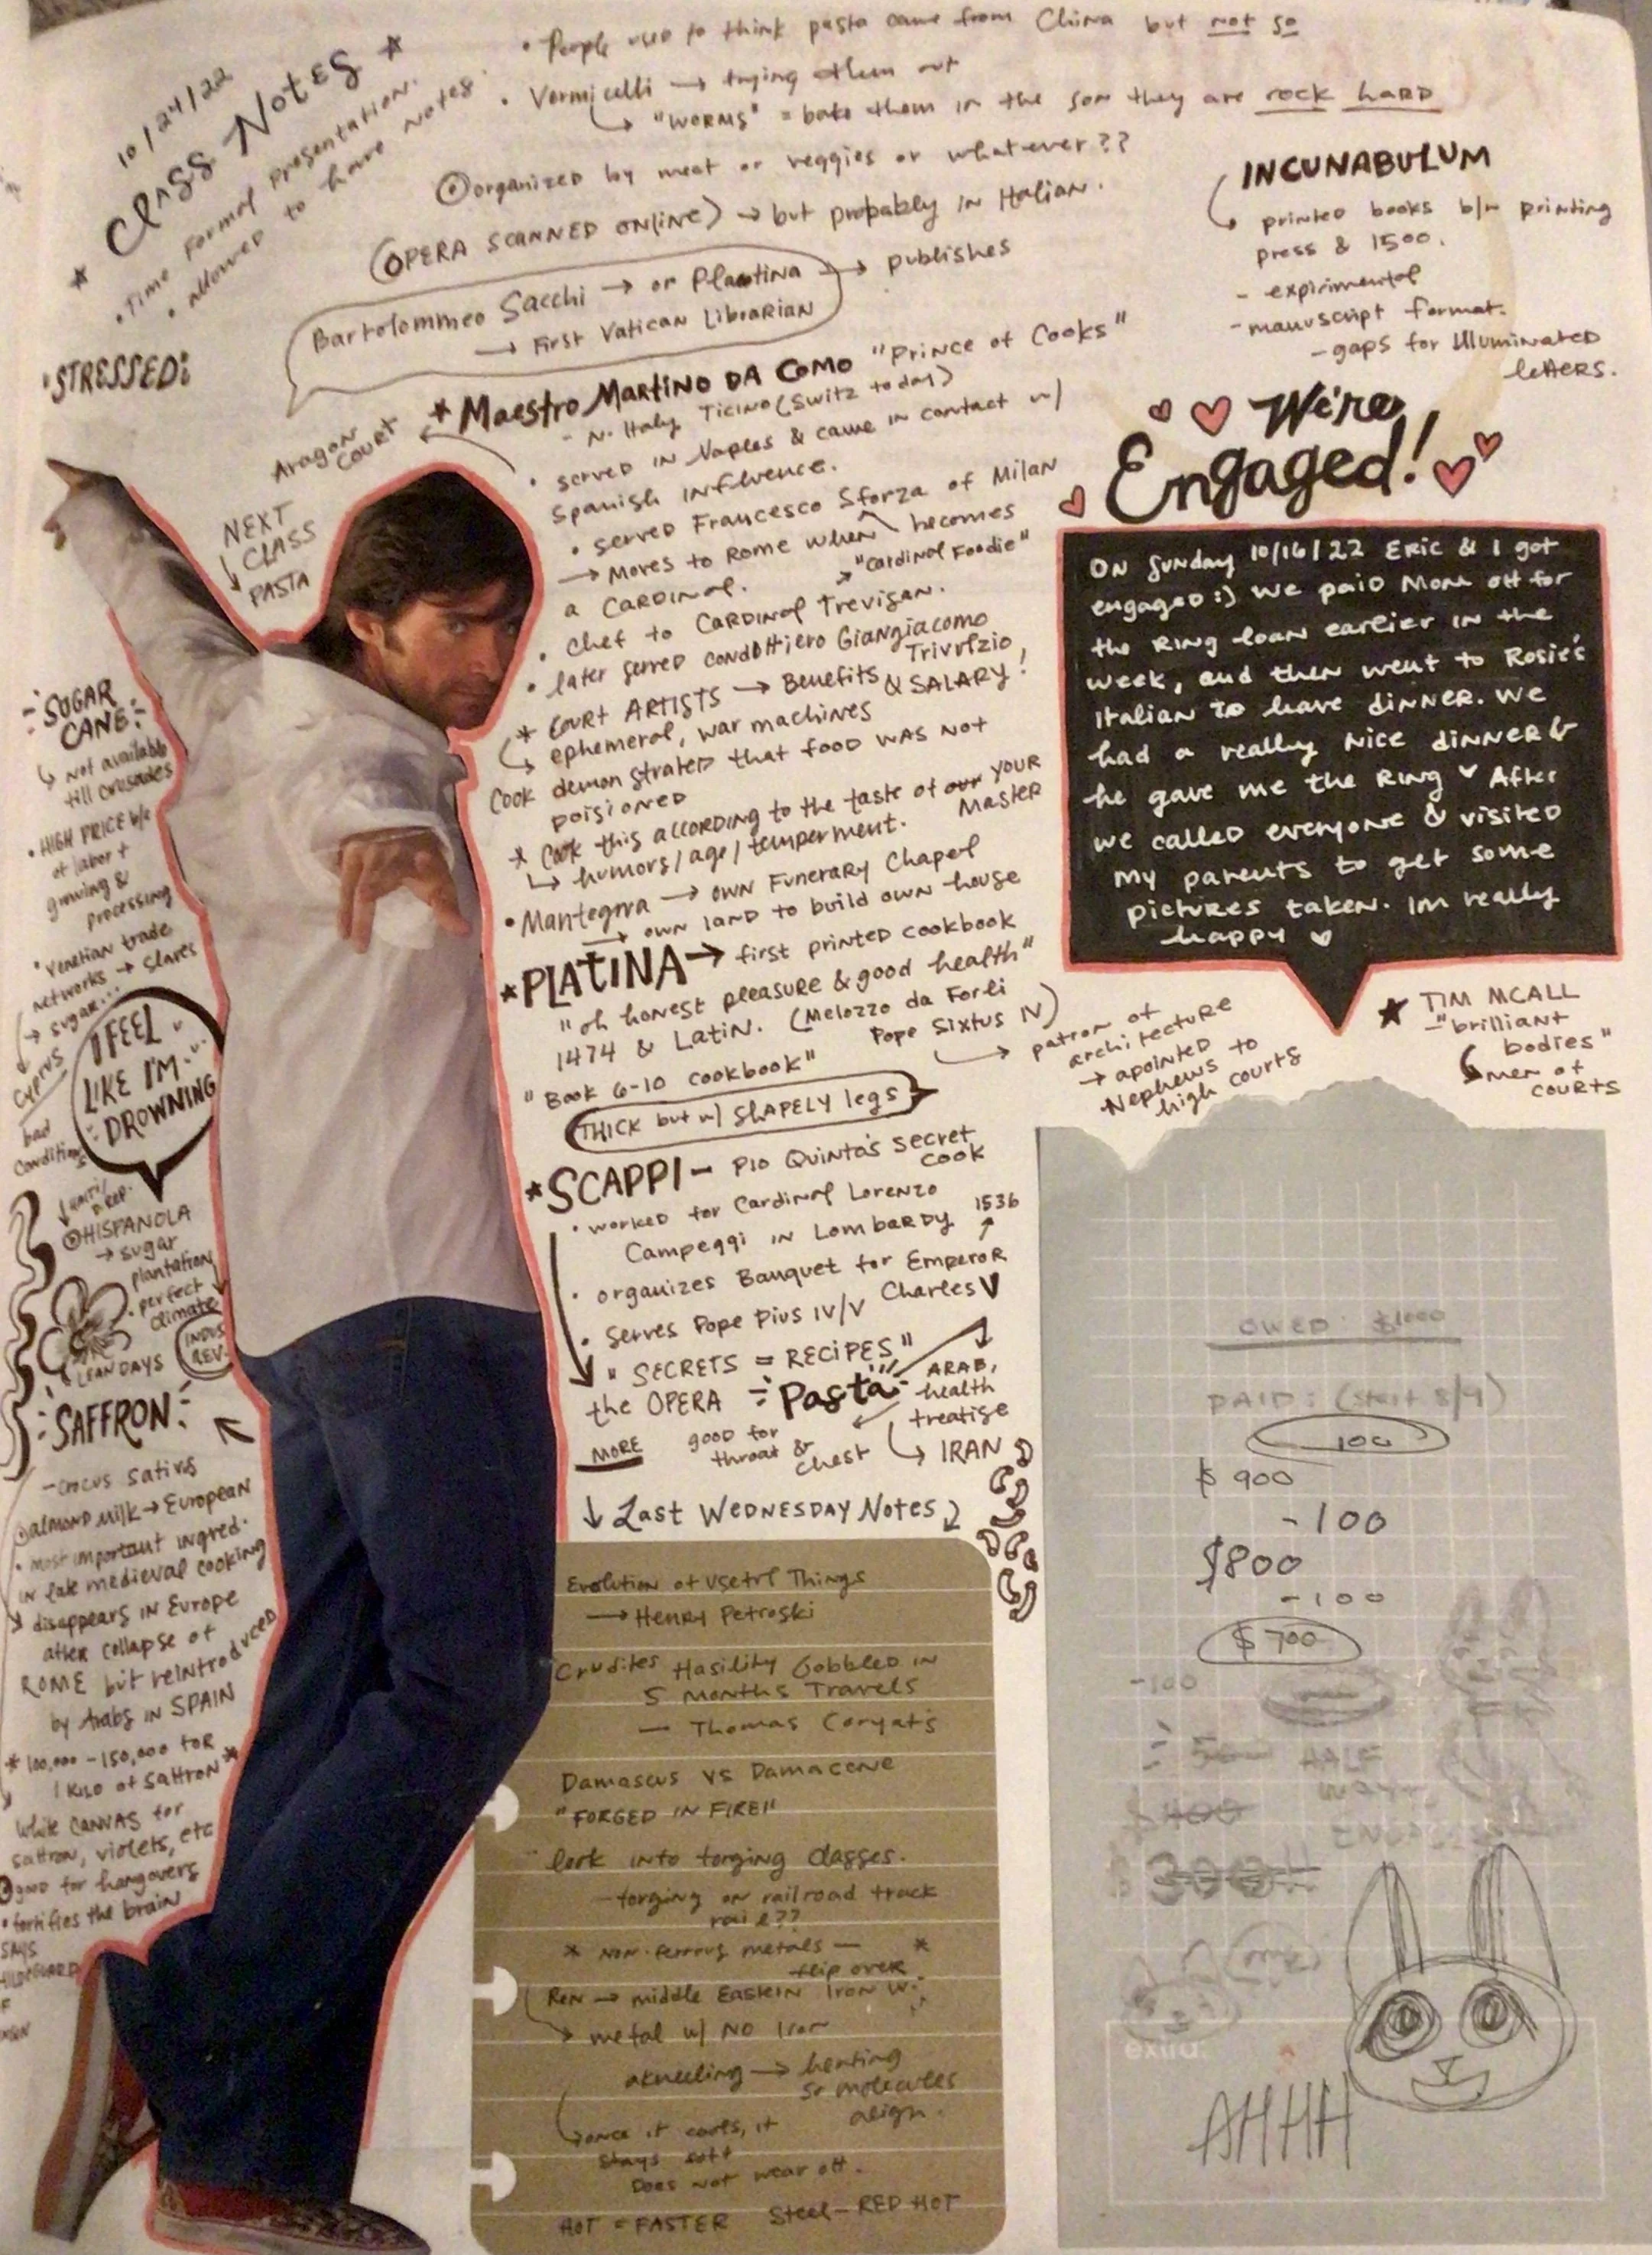 10/24/22
★ Class Notes ★
• Time Formal Presentation.
• allowed to have notes.
• People used to think pasta came from China but not so
• Vermicelli → trying them out
↳ "WORMS" = bake them in the son they are rock hard
⊙organized by meat or veggies or whatever??
(OPERA SCANNED ONline) → but probably in Italian.
Bartolommeo Sacchi → or Plantina → publishes
→ First Vatican Librarian
INCUNABULUM
↳ printed books b/w printing
press & 1500.
- expirimental
- manuscript format.
- gaps for Illuminated
letters.
• STRESSED:
★ Maestro Martino DA Como "Prince of Cooks"
- N. Italy, Ticino (Switz today)
Aragon
Court
• served in Naples & came in contact w/
Spanish influence.
• served Francesco Sforza of Milan
→ Moves to Rome when becomes
a Cardinal.
→ "Cardinal Foodie"
• Chef to Cardinal Trevisan.
• later served condottiero Giangiacomo
Trivulzio
* Court ARTISTS → Benefits & SALARY!
↳ ephemeral, war machines
Cook demonstrated that food was not
poisioned
* Cook this according to the taste of our YOUR
Master
↳ humors/age/temperment.
• Mantegna → own Funerary Chapel
→ own land to build own house
NEXT
CLASS
↓ PASTA
We're
Engaged!
ON Sunday 10/16/22 Eric & I got
engaged :) We paid Mom off for
the Ring loan earlier in the
week, and then went to Rosie's
Italian to have dinner. We
had a really nice dinner &
he gave me the Ring ♥ After
we called everyone & visited
my parents to get some
pictures taken. Im really
happy ♡
★PLATINA → first printed cookbook
"oh honest pleasure & good health"
1474 & Latin. (Melozzo da Forli
Pope Sixtus IV)
→ patron of
architecture
→ apointed
Nephews to
high courts
"Book 6-10 cookbook"
THICK but w/ SHAPELY legs
★ TIM MCALL
- "brilliant
bodies"
↳ men of
courts
★SCAPPI - Pio Quinto's secret
cook
• worked for Cardinal Lorenzo
Campeggi in Lombardy
1536
• organizes Banquet for Emperor
Charles V
• serves Pope Pius IV/V
" SECRETS = RECIPES"
the OPERA
Pasta
ARAB,
health
treatise
↳ IRAN
good for
throat &
chest
MORE
↓ Last Wednesday Notes
SUGAR
CANE:
↳ Not available
till crusades
• HIGH PRICE b/c
of labor +
growing &
processing
• Venetian trade
networks → slaves
→ sugar...
Cyprus
bad
conditions
I FEEL
LIKE I'M
DROWNING
⊙HISPANOLA
→ sugar
plantation
• perfect
climate
INDUS
REV.
LEAN DAYS
SAFFRON
- crocus sativs
⊙almond milk → European
• most important ingred.
in late medieval cooking
↘ disappears in Europe
after collapse of
ROME but reintroduced
by Arabs in SPAIN
* 100,000 - 150,000 for
1 kilo of saffron *
white CANVAS for
saffron, violets, etc
good for hangovers
• fortifies the brain
SAYS
Evolution of Useful Things
→ Henry Petroski
Crudites Hasility Gobbled in
5 months Travels
— Thomas Coryat's
Damascus vs Damacene
"FORGED IN FIRE!"
look into forging classes.
- forging on railroad track
rail??
* Non-ferrous metals — *
flip over
Ren → middle Eastern Iron W.
↳ metal w/ NO Iron
akneeling → heating
so molecules
align.
↳ once it cools, it
stays soft
Does not wear off.
HOT = FASTER Steel - RED HOT
OWED: $1000
PAID: (start 8/9)
100
$ 900
-100
$800
-100
$700
-100
HALF
WAY
extra:
AHHH